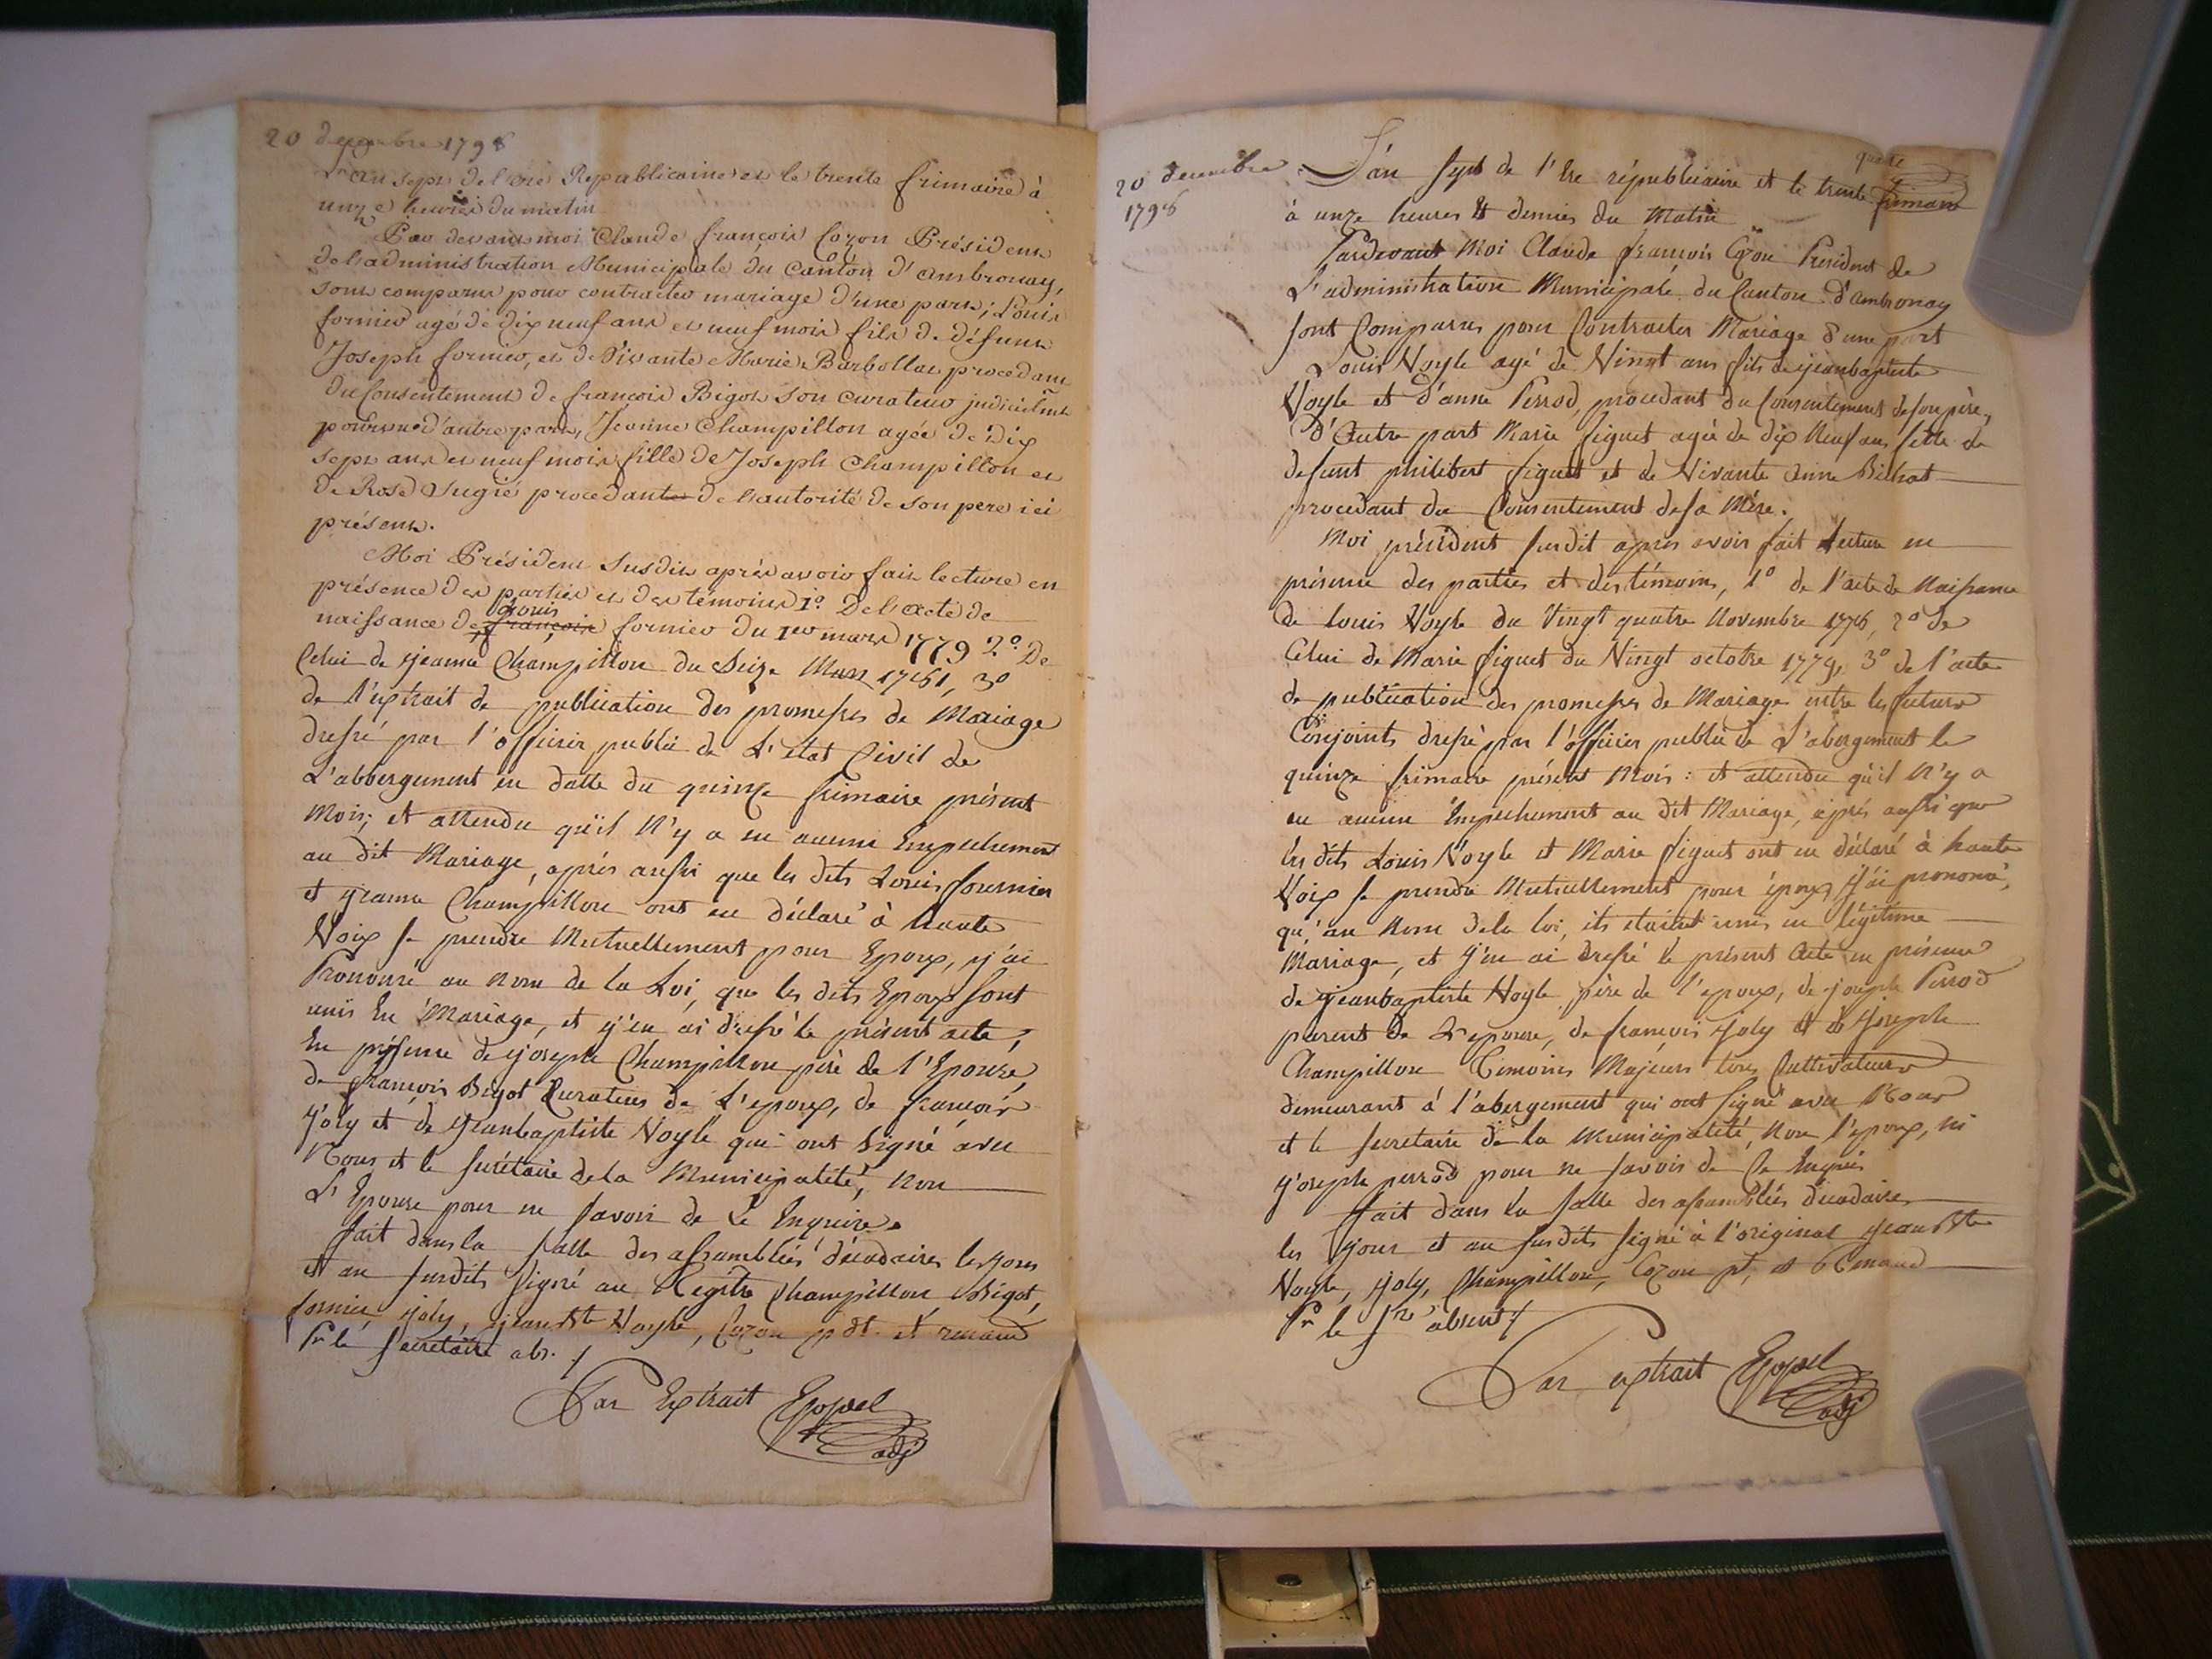 20 decembre 1798
L'an sept de l'ere Republicaine et le trente frimaire à
unze heures du matin
Par devant moi Claude françois Cozon Président
de l'administration Municipale du Canton d'ambronay,
sont comparus pour contracter mariage d'une part; Louis
fornier agé de dix neuf ans et neuf mois fils de défunt
Joseph fornier, et de Vivante Marie Barbollat procedant
du Consentement de françois Bigot son curateur
d'autre part, Jeanne Champillon agée de dix
sept ans et neuf mois fille de Joseph Champillon et
de Rose Sugié procedante de l'autorité de son pere ici
présent.
Moi Président Susdit après avoir fait lecture en
présence des parties et des témoins 1º. De l'acte de
naissance de françois Louis fornier du 1er mars 1779 2º. De
Celui de Jeanne Champillon du Seize Mars 1781, 3º
de l'extrait de publication des promesses de Mariage
dressé par l'officier public de L'etat Civil de
L'abbergement en datte du quinze frimaire présent
Mois; et attendu qu'il N'y a eu aucun Empechement
au dit Mariage, aprés aussi que les dits Louis fournier
et Jeanne Champillon ont eu déclaré à haute
Voix se prendre Mutuellement pour Epoux, j'ai
Prononcé au nom de la Loi, que les dits Epoux sont
unis En Mariage, et j'en ai dressé le présent acte,
En présence de joseph Champillon père de l'Epouse,
de françois Bigot Curateur de L'epoux, de françois
Joly et de Jeanbaptiste Noyle qui ont Signé avec
Nous et le secrétaire de la Municipalité, non
L'Epouse pour ne savoir de Ce Enquise.
fait dans la salle des assemblées décadaires les jour
et an susdits signé au Registre Champillon Bigot,
fornier, joly, jean Bte Noyle, Cozon pdt. et renaud
Pr le Secretaire abs. /
Par Extrait Eppel
adj
20 decembre
1798
L'an sept de l'Ere républicaine et le trente frimaire
à unze heures et demies du Matin
Pardevant Moi Claude françois Cozon President de
L'administration Municipale du Canton d'ambronay
sont Comparus pour Contracter Mariage d'une part
Louis Noyle agé de Vingt ans fils de jeanbaptiste
Noyle et d'anne Perrod, procedant du Consentement de son père,
D'Autre part Marie figuet agée de dix Neuf ans fille de
defunt philibert figuet et de Vivante anne Billiat
procedant du Consentement de sa Mère.
Moi président susdit apres avoir fait lecture en
présence des parties et des témoins, 1º de l'acte de Naissance
de Louis Noyle du Vingt quatre Novembre 1778, 2º de
Celui de Marie figuet du Vingt octobre 1779, 3º de l'acte
de publication des promesses de Mariage entre les futurs
Conjoints dressé par l'officier public de L'abergement le
quinze frimaire présent Mois: et attendu qu'il N'y a
eu aucun Empechement au dit Mariage, aprés aussi que
les dits Louis Noyle et Marie figuet ont eu déclaré à haute
Voix se prendre Mutuellement pour époux, j'ai prononcé,
qu'au Nom de la loi, ils etaient unis en légitime
Mariage, et j'en ai dressé le présent Acte en présence
de jeanbaptiste Noyle père de l'epoux, de joseph Perrod
parent de L'epouse, de françois joly et de joseph
Champillon Temoins Majeurs tous Cultivateurs
demeurant à l'abergement qui ont signé avec Nous
et le secretaire de la Municipalité, Non l'epoux, ni
joseph perrod pour ne savoir de Ce Enquis
fait dans la salle des assemblées décadaires
les jour et an susdits signé à l'original jean Bte
Noyle, joly, Champillon, Cozon pt, et Renaud
Pr le Sre absent /
Par extrait Eppel
adj